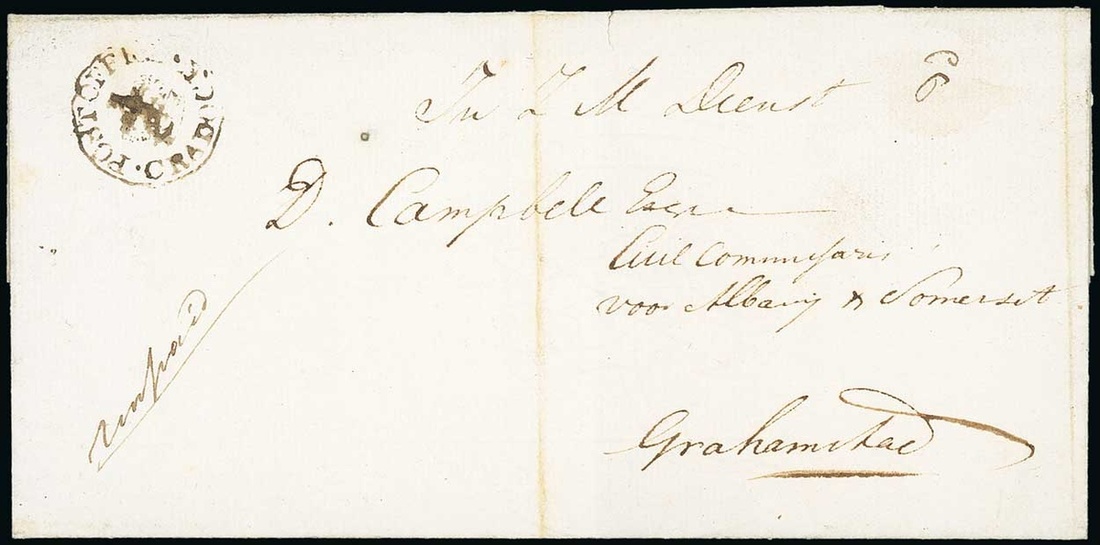 POST OFFICE · CRADOCK ·
In Z M Dienst
6
D. Campbell Esqre
Civil Commissaris
voor Albany & Somerset
unpaid
Grahamstad